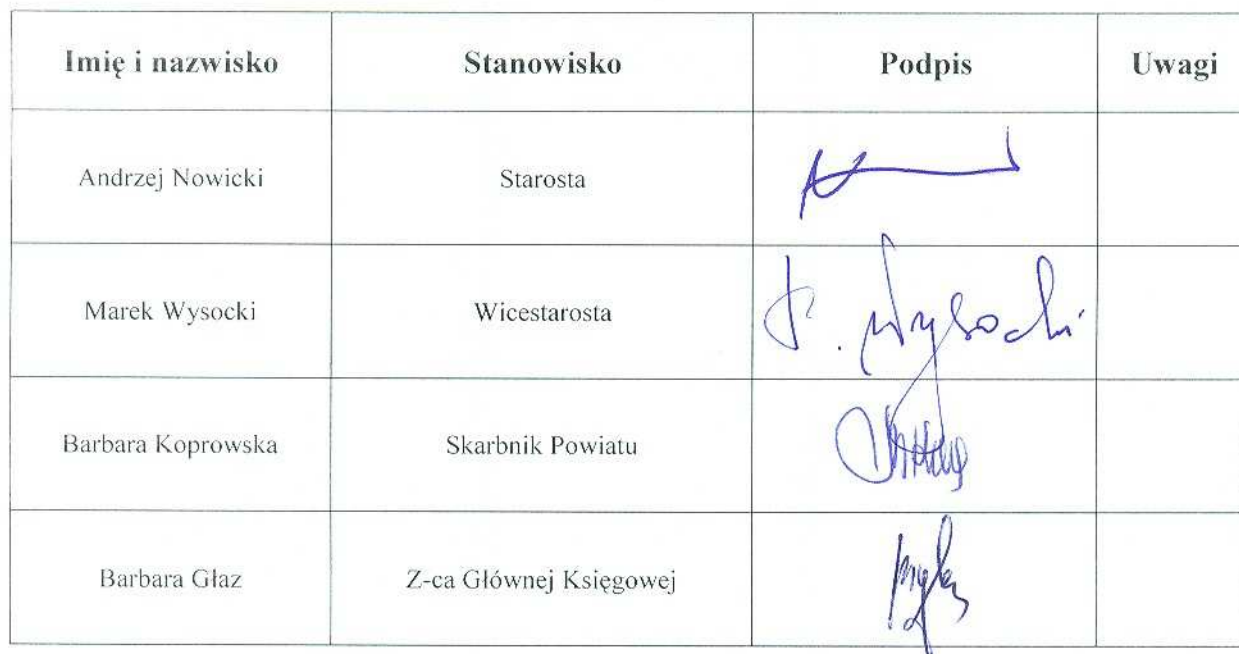 Imię i nazwisko Stanowisko Podpis Uwagi
Andrzej Nowicki Starosta
Marek Wysocki Wicestarosta Wysocki
Barbara Koprowska Skarbnik Powiatu
Barbara Głaz Z-ca Głównej Księgowej